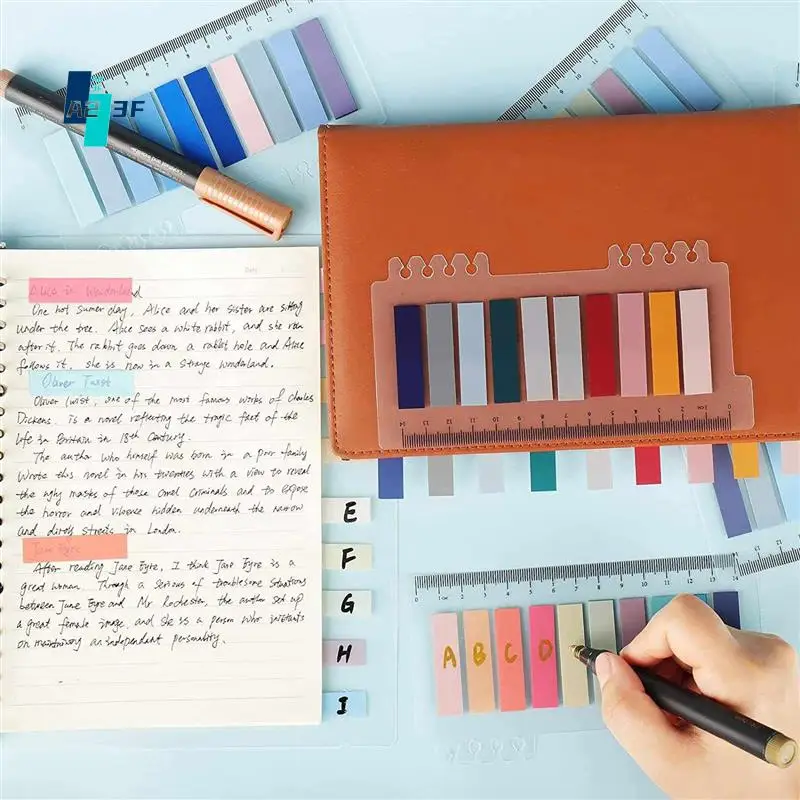 A2 3F
Date
Alice in Wonderland
One hot sumer day, Alice and her sister are sitting
under the tree. Alice sees a white rabbit, and she run
after it. The rabbit goes down a rabbit hole and Alice
follows it, she is now in a strange wonderland.
Oliver Twist
Oliver Twist, one of the most famous works of Charles
Dickens, is a novel reflecting the tragic fact of the
life in Britain in 18th Century.
The author who himself was born in a poor family
wrote this novel in his twenties with a view to reveal
the ugly masks of those cruel criminals and to expose
the horror and violence hidden underneath the narrow
and dirty streets in London.
Jane Eyre
After reading Jane Eyre, I think Jane Eyre is a
great woman. Through a serious of troublesome situations
between Jane Eyre and Mr Rochester, the author set up
a great female image, and she is a person who insistants
on maintaining an independant personality.
E
F
G
H
I
14 13 12 11 10 9 8 7 6 5 4 3 2 1CM 0
0 1CM 2 3 4 5 6 7 8 9 10 11 12 13 14
A B C D